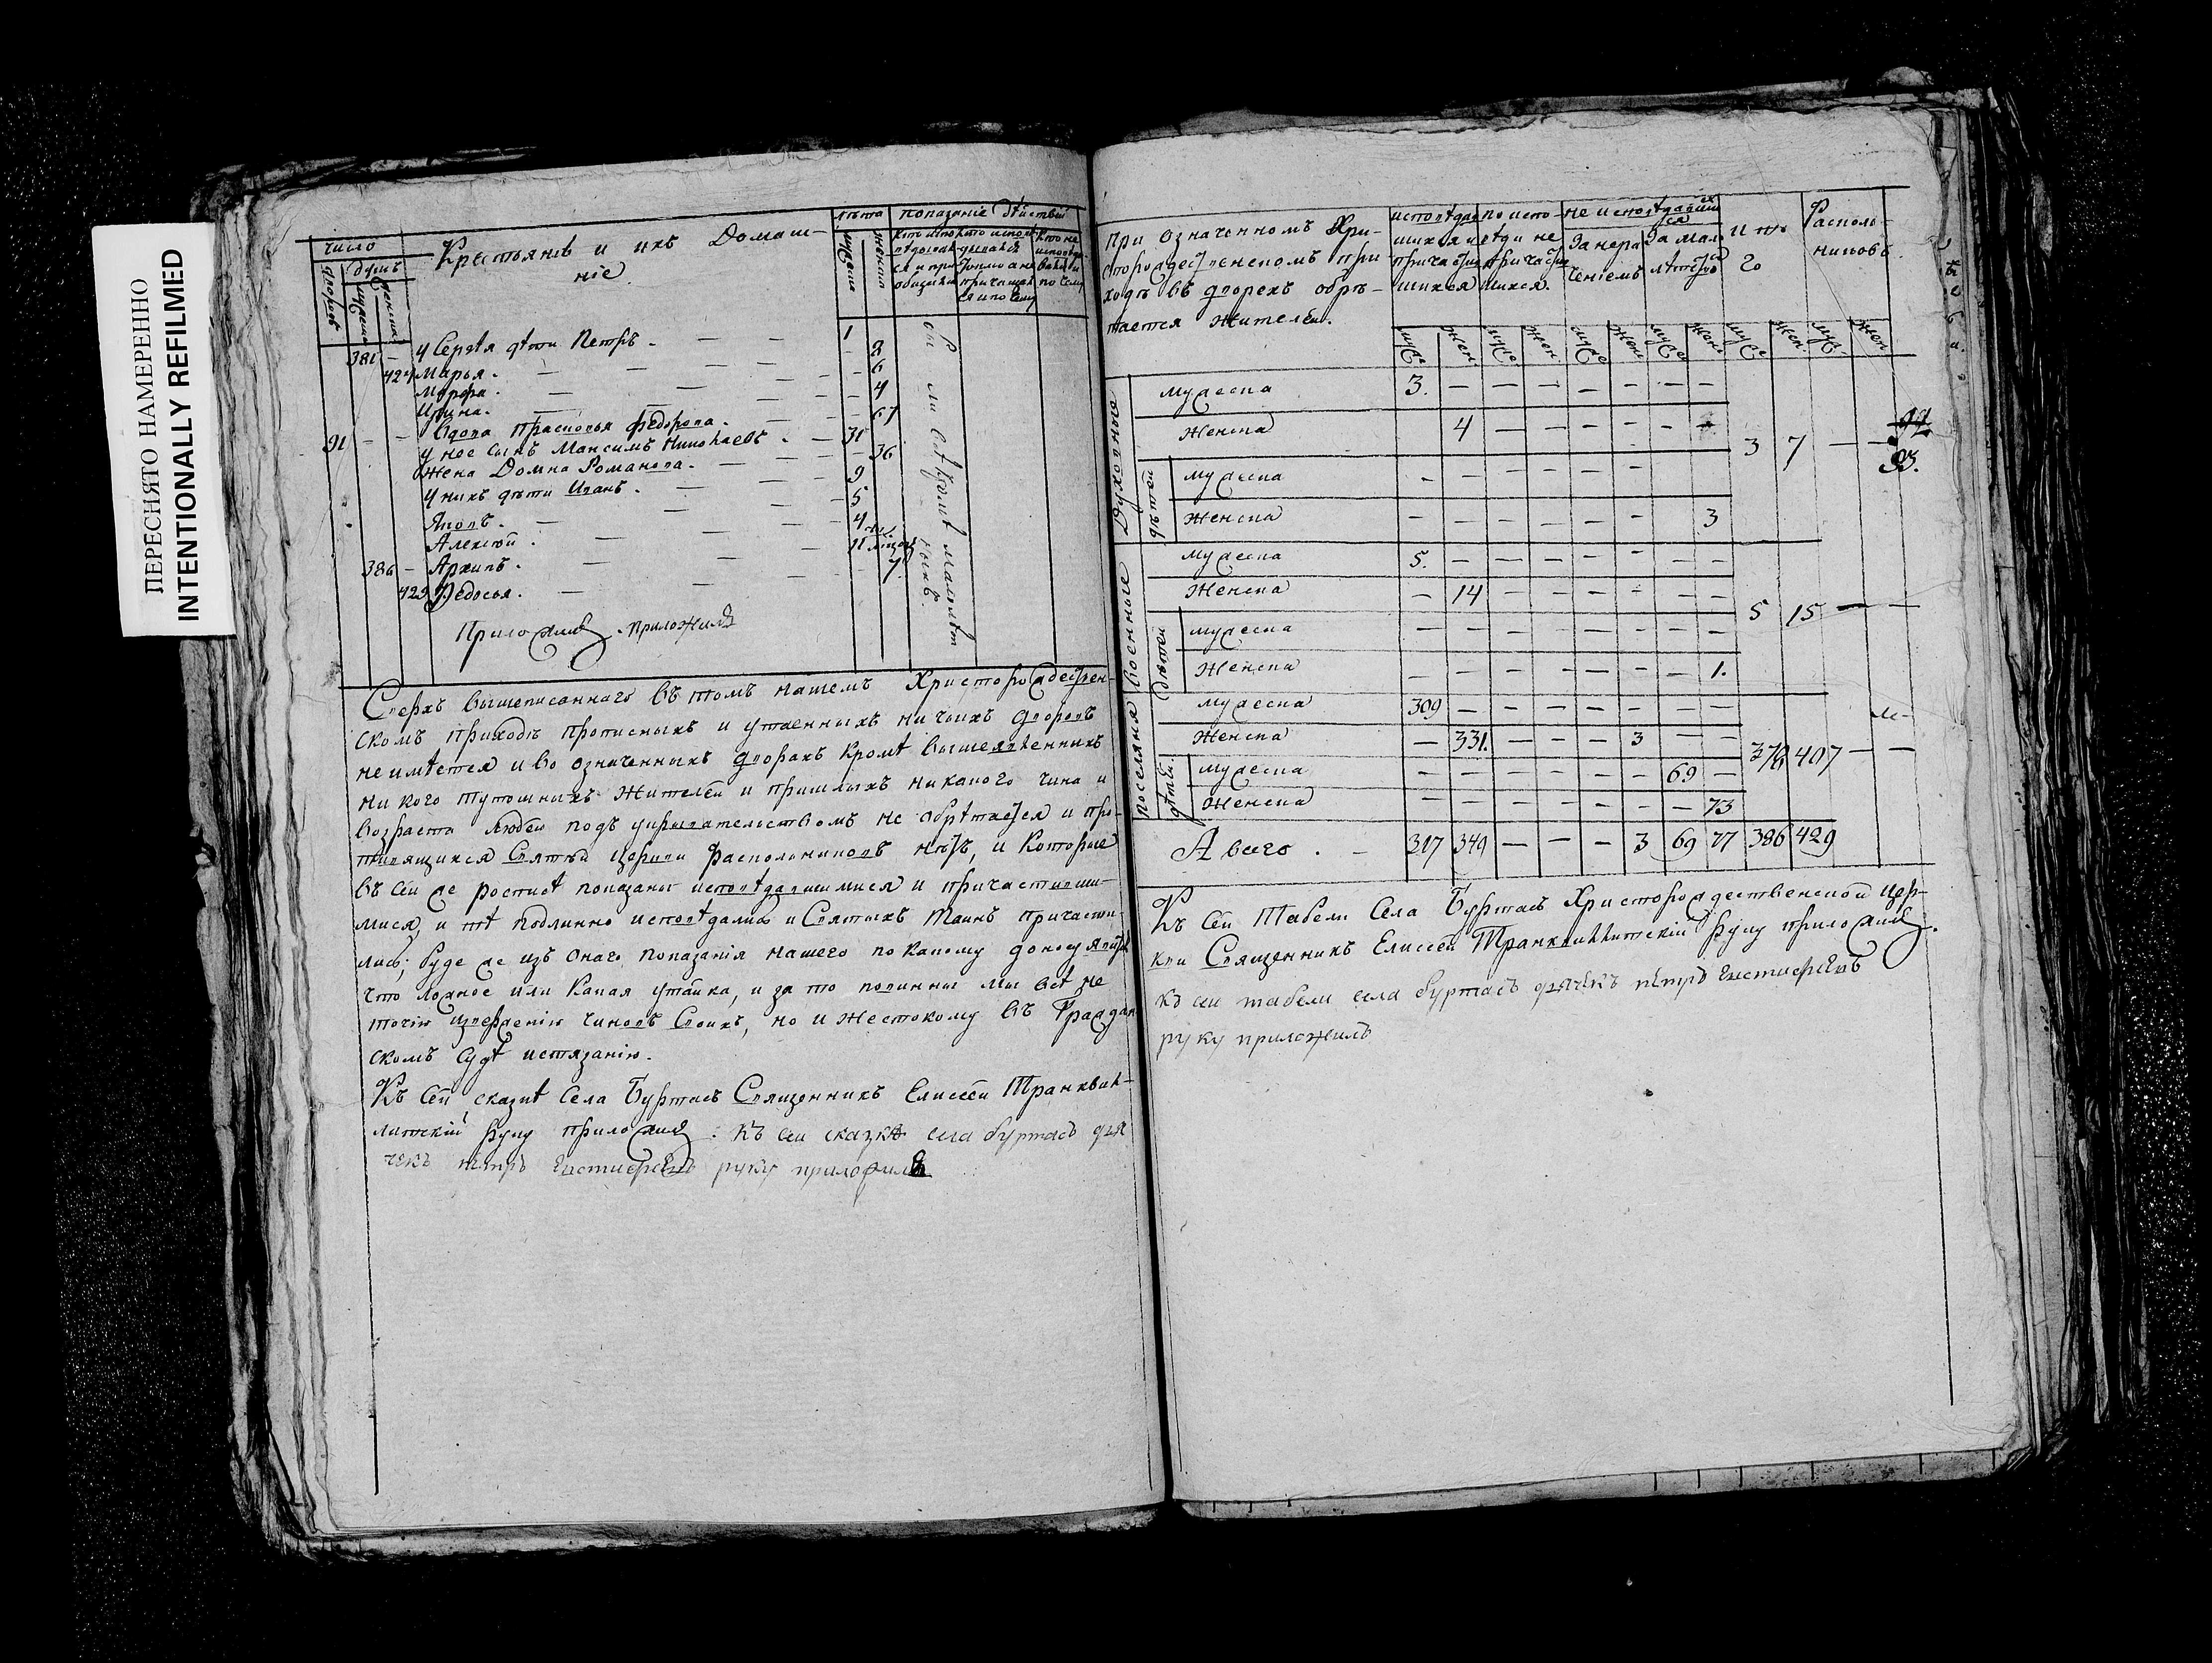 ПЕРЕСНЯТО НАМЕРЕННО
INTENTIONALLY REFILMED
число
дворовъ
душъ
мужеска
женска
Крестьянѣ и ихъ Домаш-
ніе
лѣта
мужеска
женска
показаніе дѣиствіи
381 — у Сергѣя дѣти Петръ. — — 1
424 Марья. — — — 2
Марѳа. — — — 6
Ирина. — — — 4
91 — — вдова Прасковья Федорова. — — 67
у нее сынъ Максимъ Николаевъ. — 31
Жена Домна Романова. — — 36
у нихъ дѣти Иванъ. — — 9
Яковъ. — — 5
Алексѣй. — — 4
386 — Архипъ. — — 11
429 Федосья. — — 7
всѣ малолѣт
ныхъ.
Приложилъ. приложилъ
Сверхъ вышеписаннаго въ томъ нашемъ Христорождествен-
скомъ приходѣ прописныхъ и утаенныхъ ни чьихъ дворовъ
не имѣется и во означенныхъ дворахъ кромѣ вышеявленныхъ
ни кого тутошныхъ жителей и пришлыхъ никакого чина и
возраста людей подъ укрывательствомъ не обрѣтается и про-
тивящихся Святѣй церкви раскольниковъ нѣтъ, и которые
въ сей же росписѣ показаны исповѣдавшимися и причастивши-
мися, и тѣ подлинно исповѣдались и Святыхъ Таинъ причасти-
лись; буде же изъ онаго показанія нашего по какому доносу явится
что ложное или какая утайка, и за то повинны мы всѣ не
точію изверженію чиновъ своихъ, но и жестокому въ Граждан
скомъ судѣ истязанію.
Къ сей сказкѣ села Буртасъ Священникъ Елисей Транквил-
литскій руку приложилъ. къ сеи сказкѣ села буртасъ дья
чекъ петръ руку приложилъ
При означенномъ Хри-
сторождественскомъ при-
ходѣ въ дворехъ обрѣ-
тается жителей.
исповѣдав
шихся и
причастив
шихся
по испо-
вѣди не
причастив
шихся.
не исповѣдавших
ся
За нера
ченіемъ
За мал
лѣтство
И то
го
Расколь-
никовъ.
муж. жен. муж. жен. муж. жен. муж. жен. муж. жен. муж. жен.
Духовные
мужеска 3. — — — — — — —
Женска 4 — — — — —
3 7 — —
93.
дѣтей
мужеска - — — — — —
Женска — — — — — — 3
военные
мужеска 5. — — — — — —
Женска — 14 — — — — — —
5 15 — —
дѣтей
мужеска — — — — — — — —
Женска — — — — — — — 1.
поселяня
мужеска 309 — — — — — — —
Женска — 331. — — — 3 — —
378 407 — —
дѣтей.
мужеска — — — — — — 69 —
Женска — — — — — — — 73
А всего . — 317 349 — — — 3 69 77 386 429
Къ сей табели села Буртасъ Христорождественской цер-
кви Священникъ Елисей Транквиллитскій руку приложилъ.
къ сеи табели села буртасъ дячекъ петръ
руку приложилъ